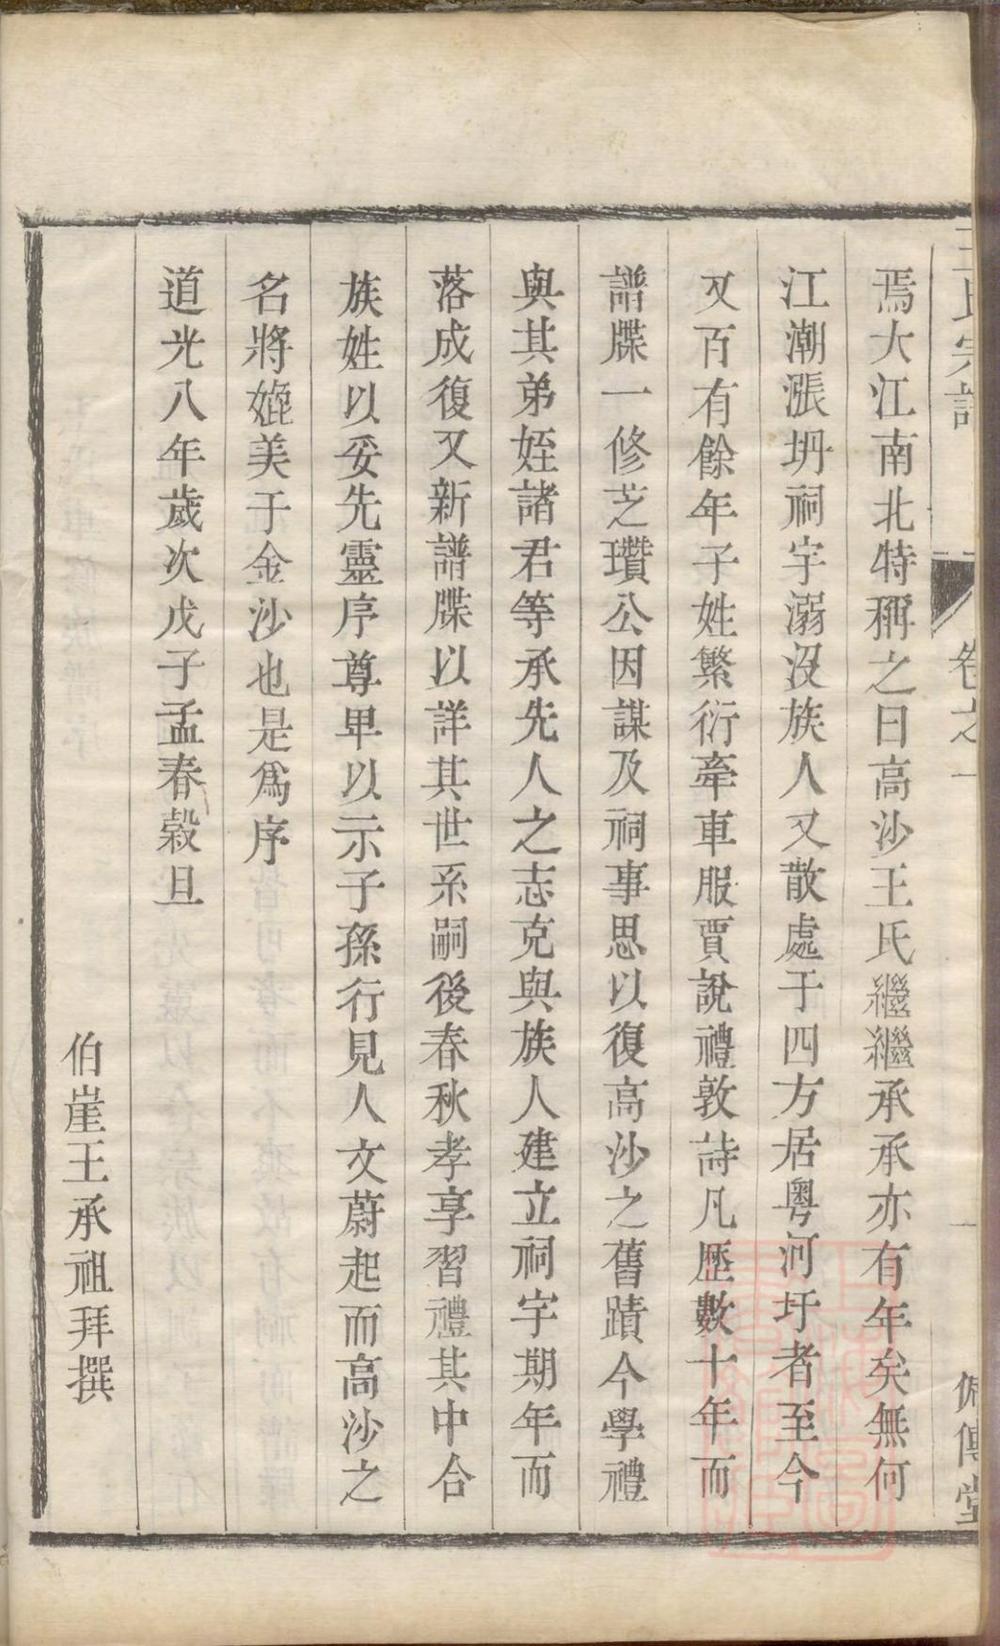 王氏宗譜 卷之一 一
焉大江南北特稱之曰高沙王氏繼繼承承亦有年矣無何
江潮漲坍祠宇溺沒族人又散處于四方居粵河圩者至今
又百有餘年子姓繁衍牽車服賈說禮敦詩凡歷數十年而
譜牒一修芝瓚公因謀及祠事思以復高沙之舊蹟今學禮
與其弟姪諸君等承先人之志克與族人建立祠宇期年而
落成復又新譜牒以詳其世系嗣後春秋孝享習禮其中合
族姓以妥先靈序尊卑以示子孫行見人文蔚起而高沙之
名將媲美于金沙也是爲序
道光八年歲次戊子孟春穀旦
伯崖王承祖拜撰